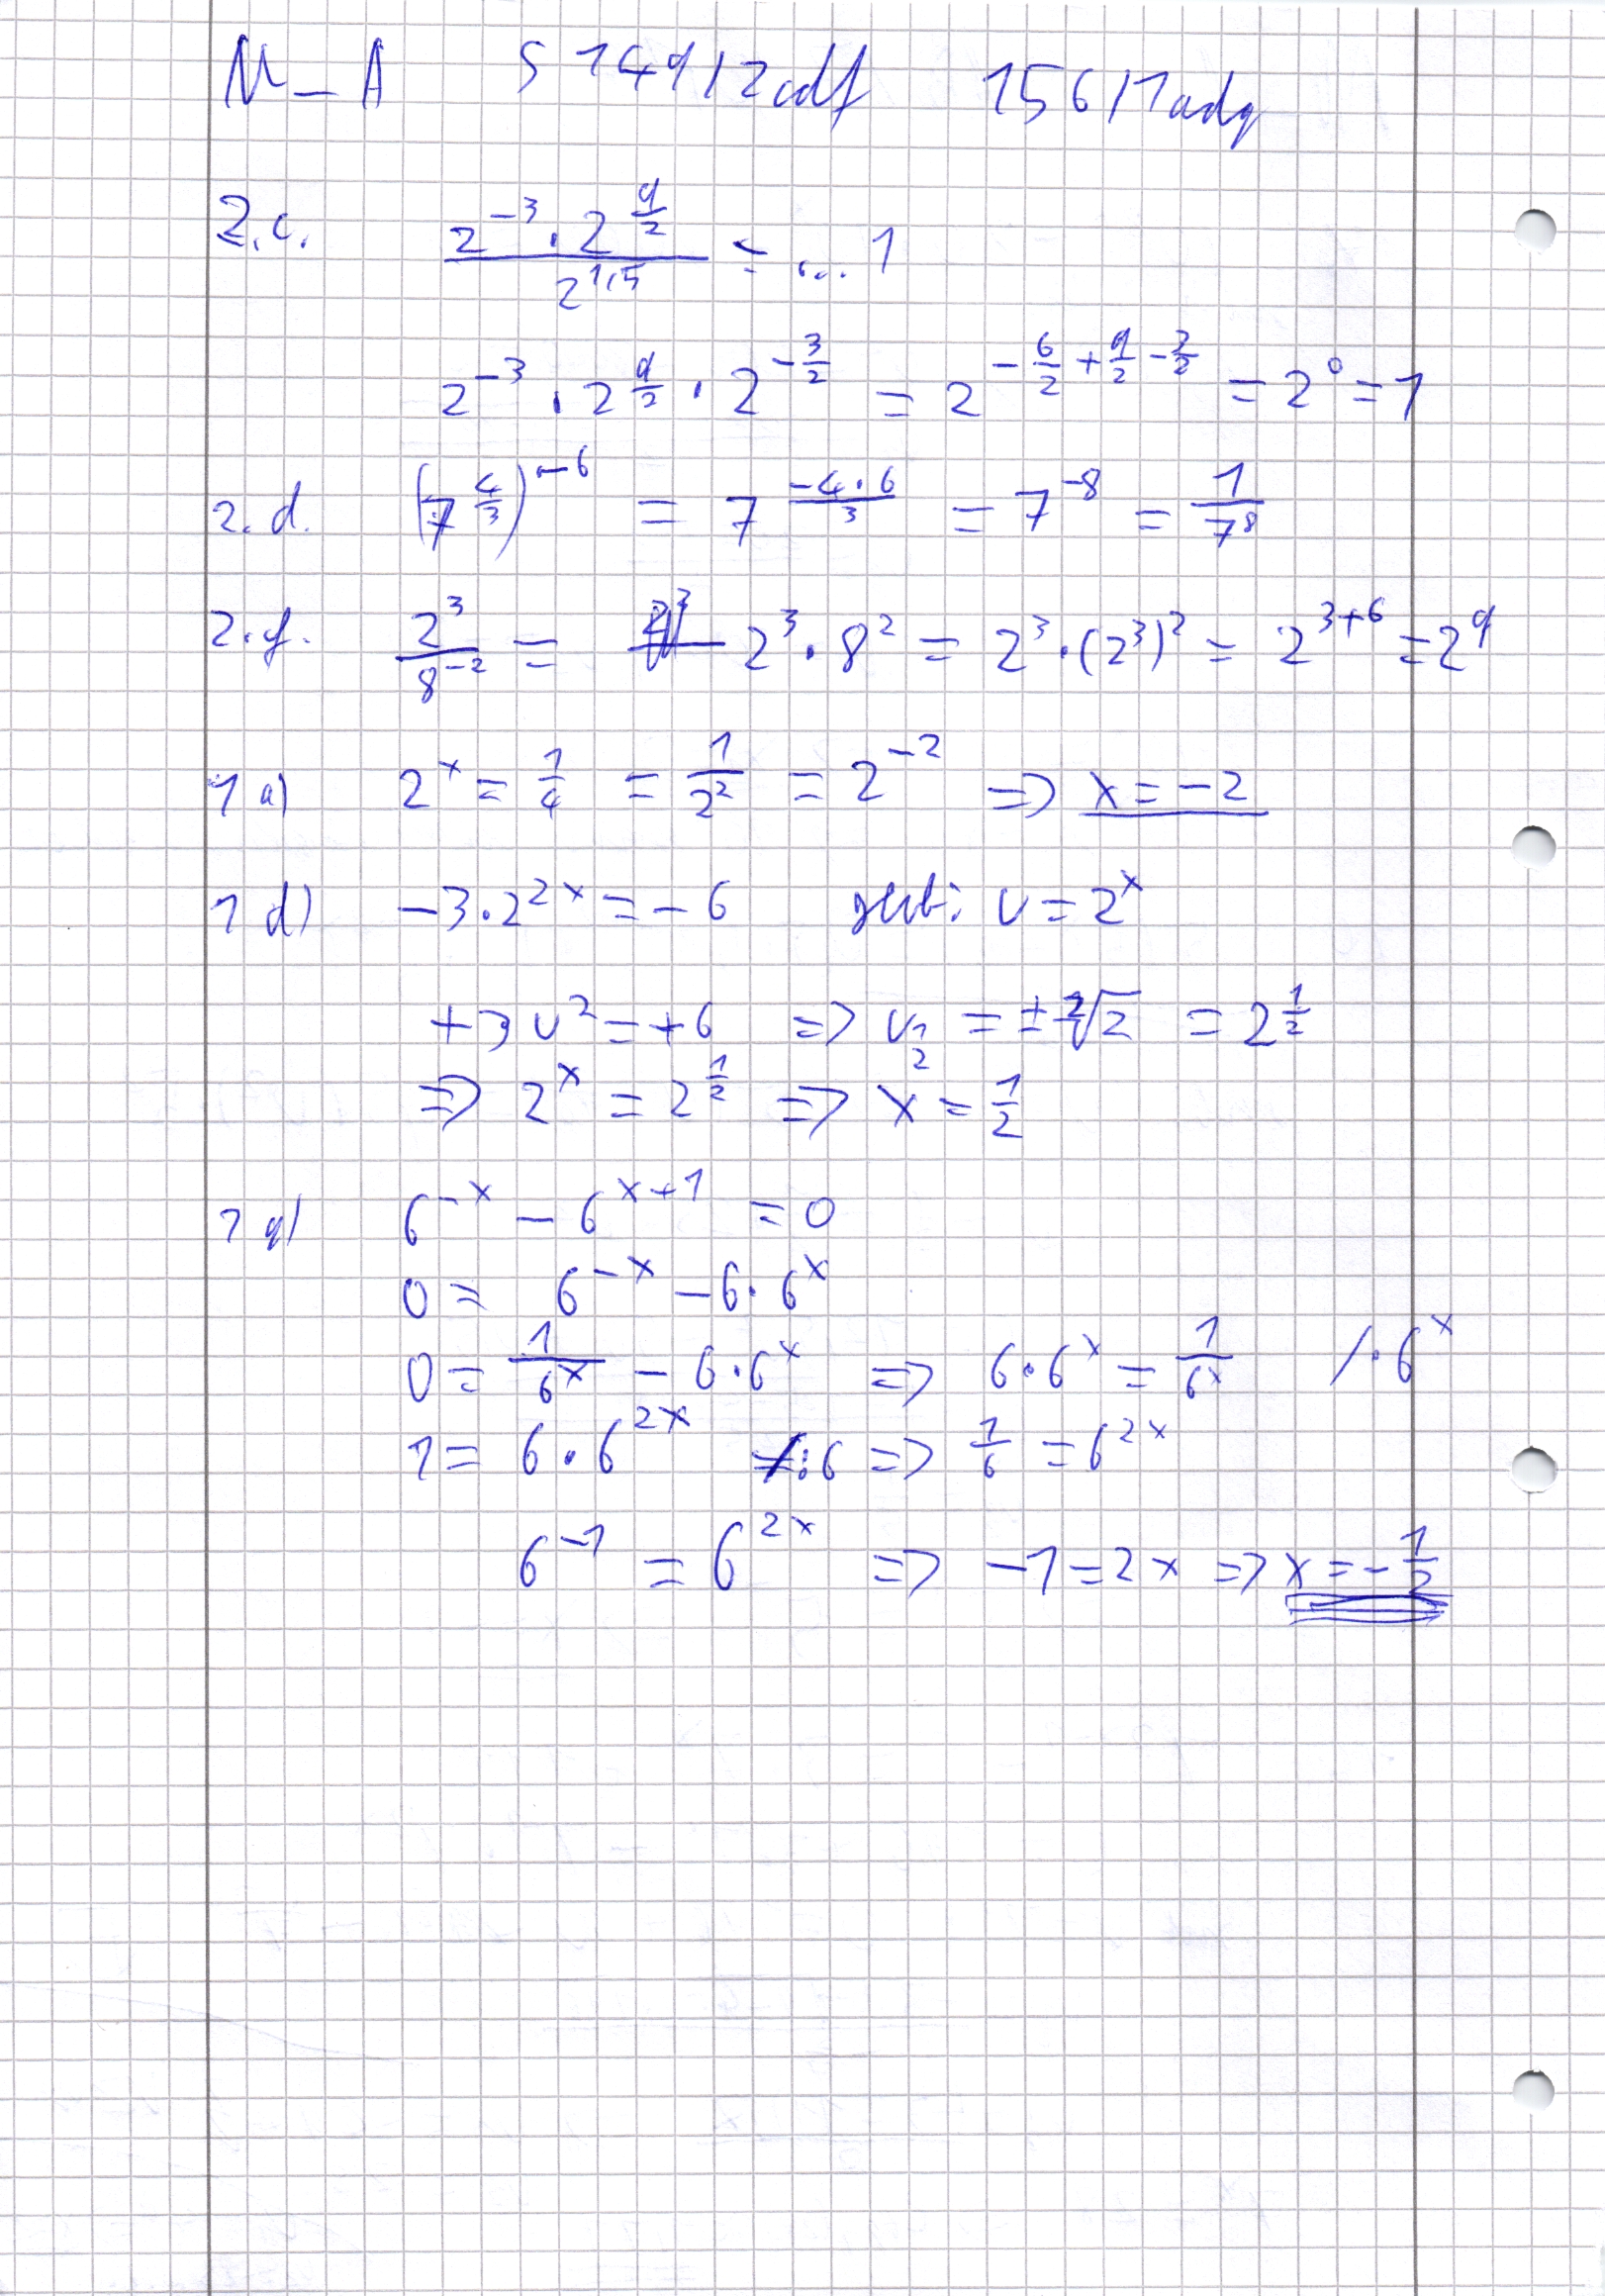 M-A S 149/2cdf 156/1adg
2.c. (2^-3 · 2^(9/2)) / 2^1,5 = ... 1
2^-3 · 2^(9/2) · 2^(-3/2) = 2^(-6/2 + 9/2 - 3/2) = 2^0 = 1
2.d. (7^(4/3))^-6 = 7^(-4·6/3) = 7^-8 = 1/7^8
2.f. 2^3 / 8^-2 = 2^3 · 8^2 = 2^3 · (2^3)^2 = 2^(3+6) = 2^9
1 a) 2^x = 1/4 = 1/2^2 = 2^-2 => x = -2
1 d) -3·2^(2x) = -6 u = 2^x
+3u^2 = +6 => u_1/2 = ± ²√2 = 2^(1/2)
=> 2^x = 2^(1/2) => x = 1/2
1 g) 6^-x - 6^(x+1) = 0
0 = 6^-x - 6·6^x
0 = 1/6^x - 6·6^x => 6·6^x = 1/6^x /·6^x
1 = 6·6^(2x) /:6 => 1/6 = 6^(2x)
6^-1 = 6^(2x) => -1 = 2x => x = -1/2